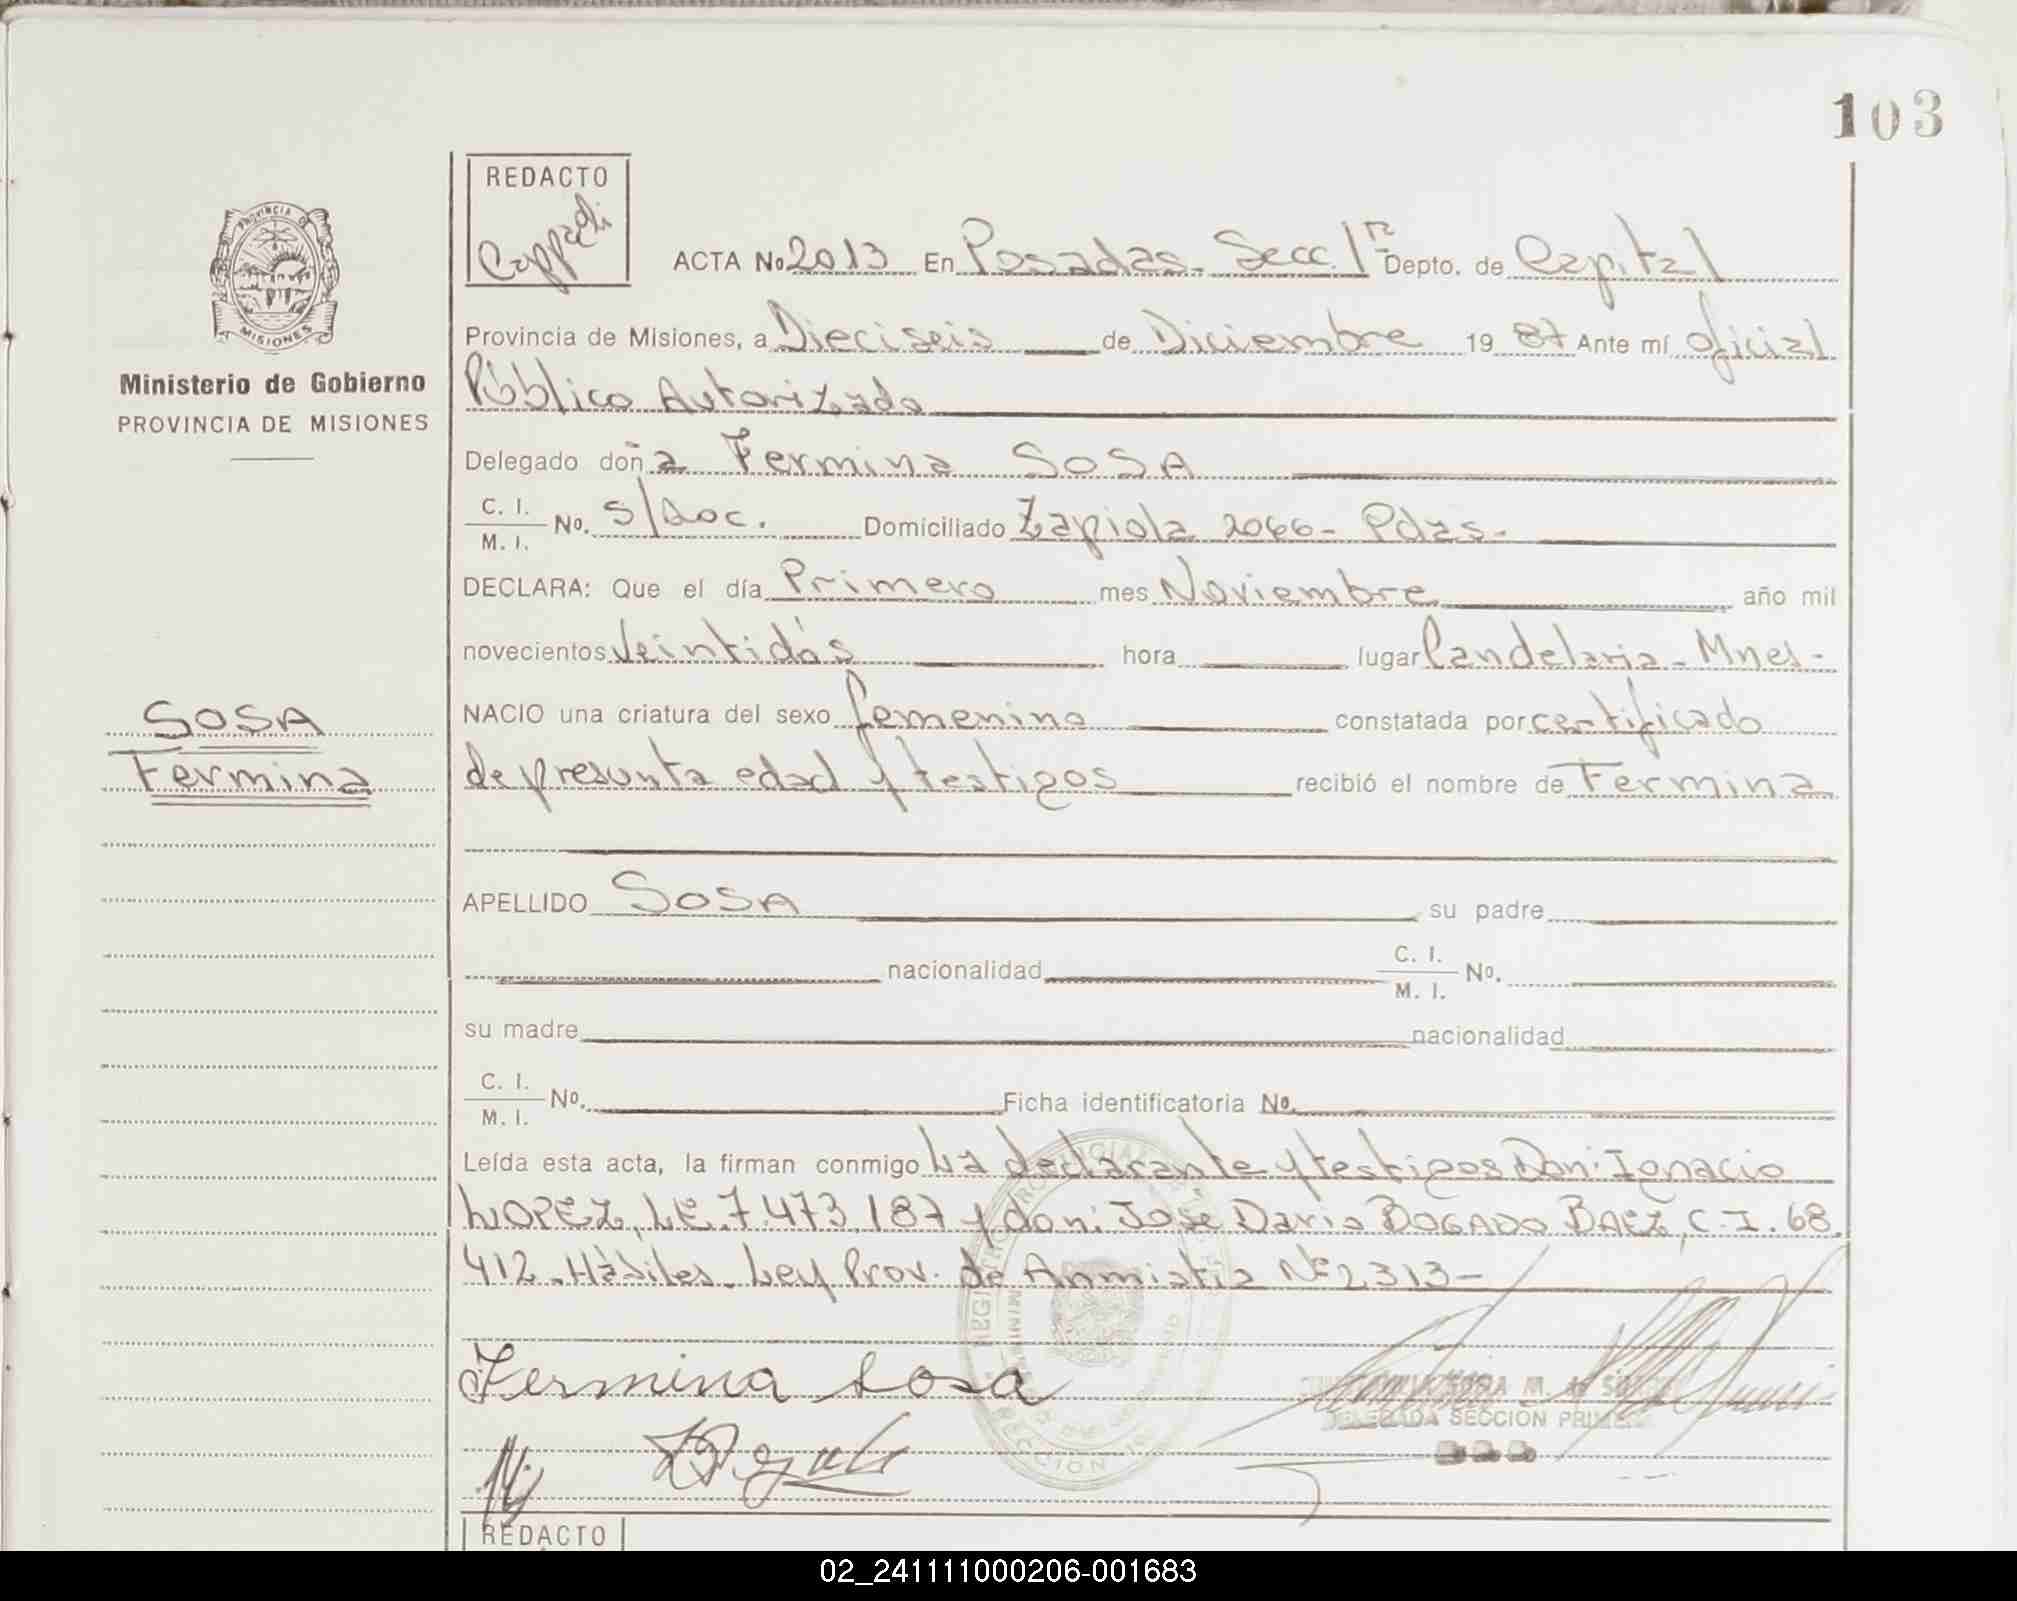 103
REDACTO
ACTA No 2013 En Posadas - Secc. 1ra Depto. de Capital
Provincia de Misiones, a Dieciseis de Diciembre 19 87 Ante mí oficial
Público Autorizado
PROVINCIA DE
MISIONES
Ministerio de Gobierno
PROVINCIA DE MISIONES
Delegado doña Fermina SOSA
C. I.
M. I. No. s/doc. Domiciliado Zapiola 2066 - Pdas -
DECLARA: Que el día Primero mes Noviembre año mil
novecientos Veintidós hora lugar Candelaria - Mnes -
SOSA
Fermina
NACIO una criatura del sexo femenino constatada por certificado
de presunta edad y testigos recibió el nombre de Fermina
APELLIDO SOSA su padre
nacionalidad C. I.
M. I. No.
su madre nacionalidad
C. I.
M. I. No. Ficha identificatoria No.
Leída esta acta, la firman conmigo La declarante y testigos Don: Ignacio
LOPEZ, L.E. 7.473.187 y don: José Dario BOGADO BAEZ, C.I. 68.
412. Hábiles. Ley Prov. de Anmistia Nº 2313 -
Fermina Sosa
DELEGADA SECCION
REDACTO
02_241111000206-001683